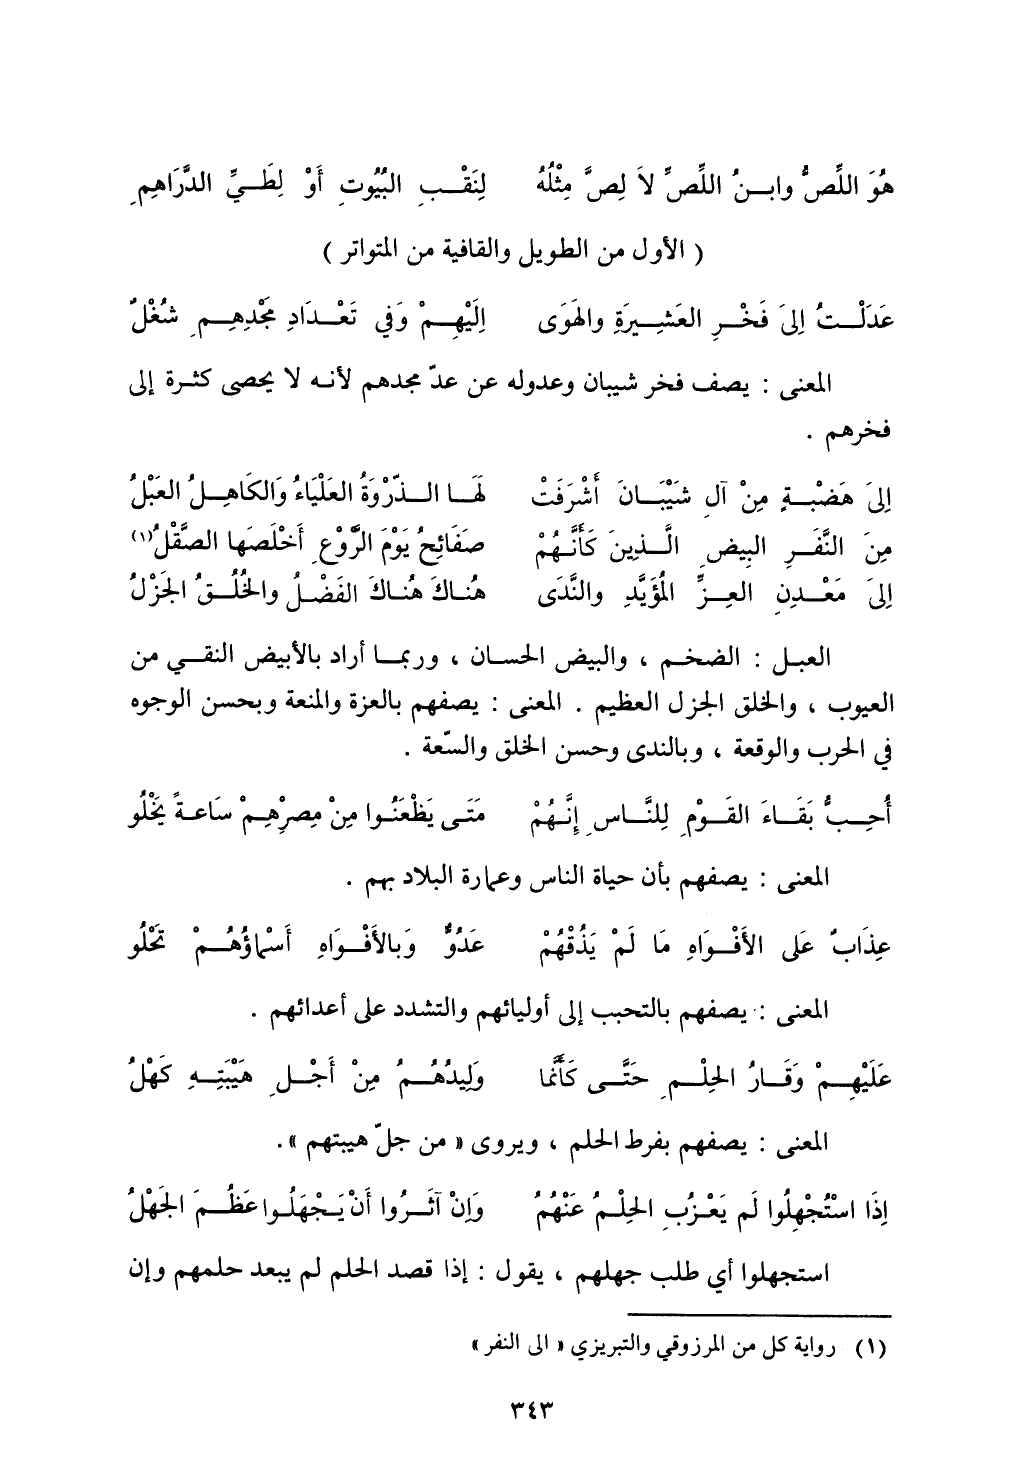 هُوَ اللِّصُّ وابنُ اللِّصِّ لاَ لِصَّ مِثْلُهُ لِنَقْبِ البُيُوتِ أَوْ لِطَيِّ الدَّرَاهِمِ
( الأول من الطويل والقافية من المتواتر )
عَدَلْتُ إِلىَ فَخْرِ العَشِيرَةِ والهَوَى إِلَيْهِمْ وَفي تَعْدَادِ مَجْدِهِمِ شُغْلُ
المعنى : يصف فخر شيبان وعدوله عن عدّ مجدهم لأنه لا يحصى كثرة إلى
فخرهم .
إِلىَ هَضْبَةٍ مِنْ آلِ شَيْبَانَ أَشْرَفَتْ لَهَا الذّرْوَةُ العَلْيَاءُ وَالكَاهِلُ العَبْلُ
مِنَ النَّفَرِ البِيضِ الَّذِينَ كَأَنَّهُمْ صَفَائِحُ يَوْمَ الرَّوْعِ أَخْلَصَها الصَّقْلُ(١)
إِلىَ مَعْدِنِ العِزِّ المُؤَيَّدِ والنَّدَى هُناكَ هُناكَ الفَضْلُ والخُلُقُ الجَزْلُ
العبل : الضخم ، والبيض الحسان ، وربما أراد بالأبيض النقي من
العيوب ، والخلق الجزل العظيم . المعنى : يصفهم بالعزة والمنعة وبحسن الوجوه
في الحرب والوقعة ، وبالندى وحسن الخلق والسّعة .
أُحِبُّ بَقَاءَ القَوْمِ لِلنَّاسِ إِنَّهُمْ مَتَى يَظْعَنُوا مِنْ مِصرِهِمْ سَاعةً يَخْلُو
المعنى : يصفهم بأن حياة الناس وعمارة البلاد بهم .
عِذَابٌ عَلى الأَفْوَاهِ مَا لَمْ يَذُقْهُمْ عَدُوٌّ وَبالأَفْوَاهِ أَسْماؤُهُمْ تَحْلُو
المعنى : يصفهم بالتحبب إلى أوليائهم والتشدد على أعدائهم .
عَلَيْهِمْ وَقَارُ الحِلْمِ حَتَّى كَأَنَّما وَلِيدُهُمُ مِنْ أَجْلِ هَيْبَتِهِ كَهْلُ
المعنى : يصفهم بفرط الحلم ، ويروى « من جلّ هيبتهم ».
إِذَا اسْتُجْهِلُوا لَم يَعْزُبِ الحِلْمُ عَنْهُمُ وَإِنْ آثَرُوا أَنْ يَجْهَلُوا عَظُمَ الجَهْلُ
استجهلوا أي طلب جهلهم ، يقول : إذا قصد الحلم لم يبعد حلمهم وإن
(١) رواية كل من المرزوقي والتبريزي « الى النفر »
٣٤٣